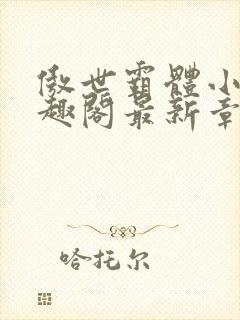 傲世霸體小
趣閣最新章
哈托尔